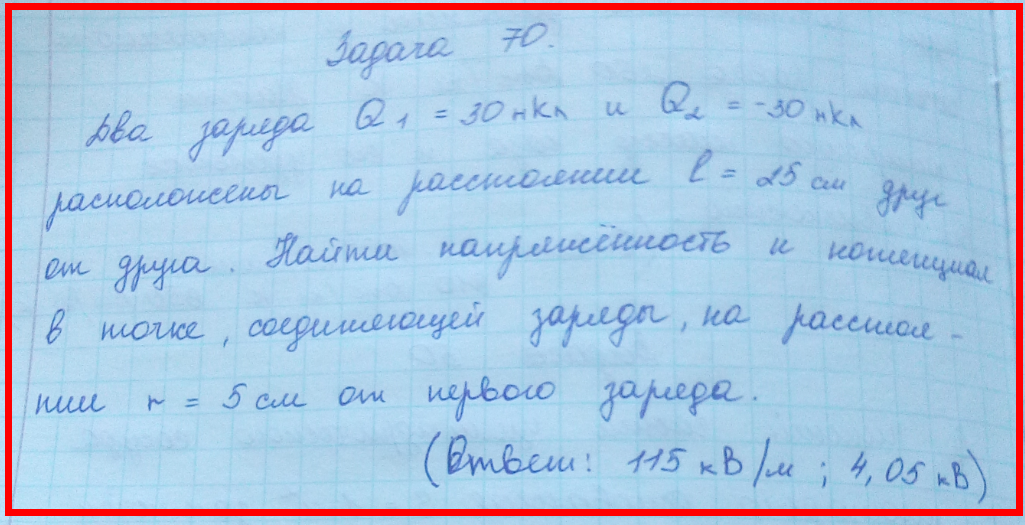 Задача 70.
Два заряда Q₁ = 30 нКл и Q₂ = -30 нКл
расположены на расстоянии l = 25 см друг
от друга. Найти напряжённость и потенциал
в точке, соединяющей заряды, на расстоя-
нии r = 5 см от первого заряда.
(Ответ: 115 кВ/м ; 4,05 кВ)